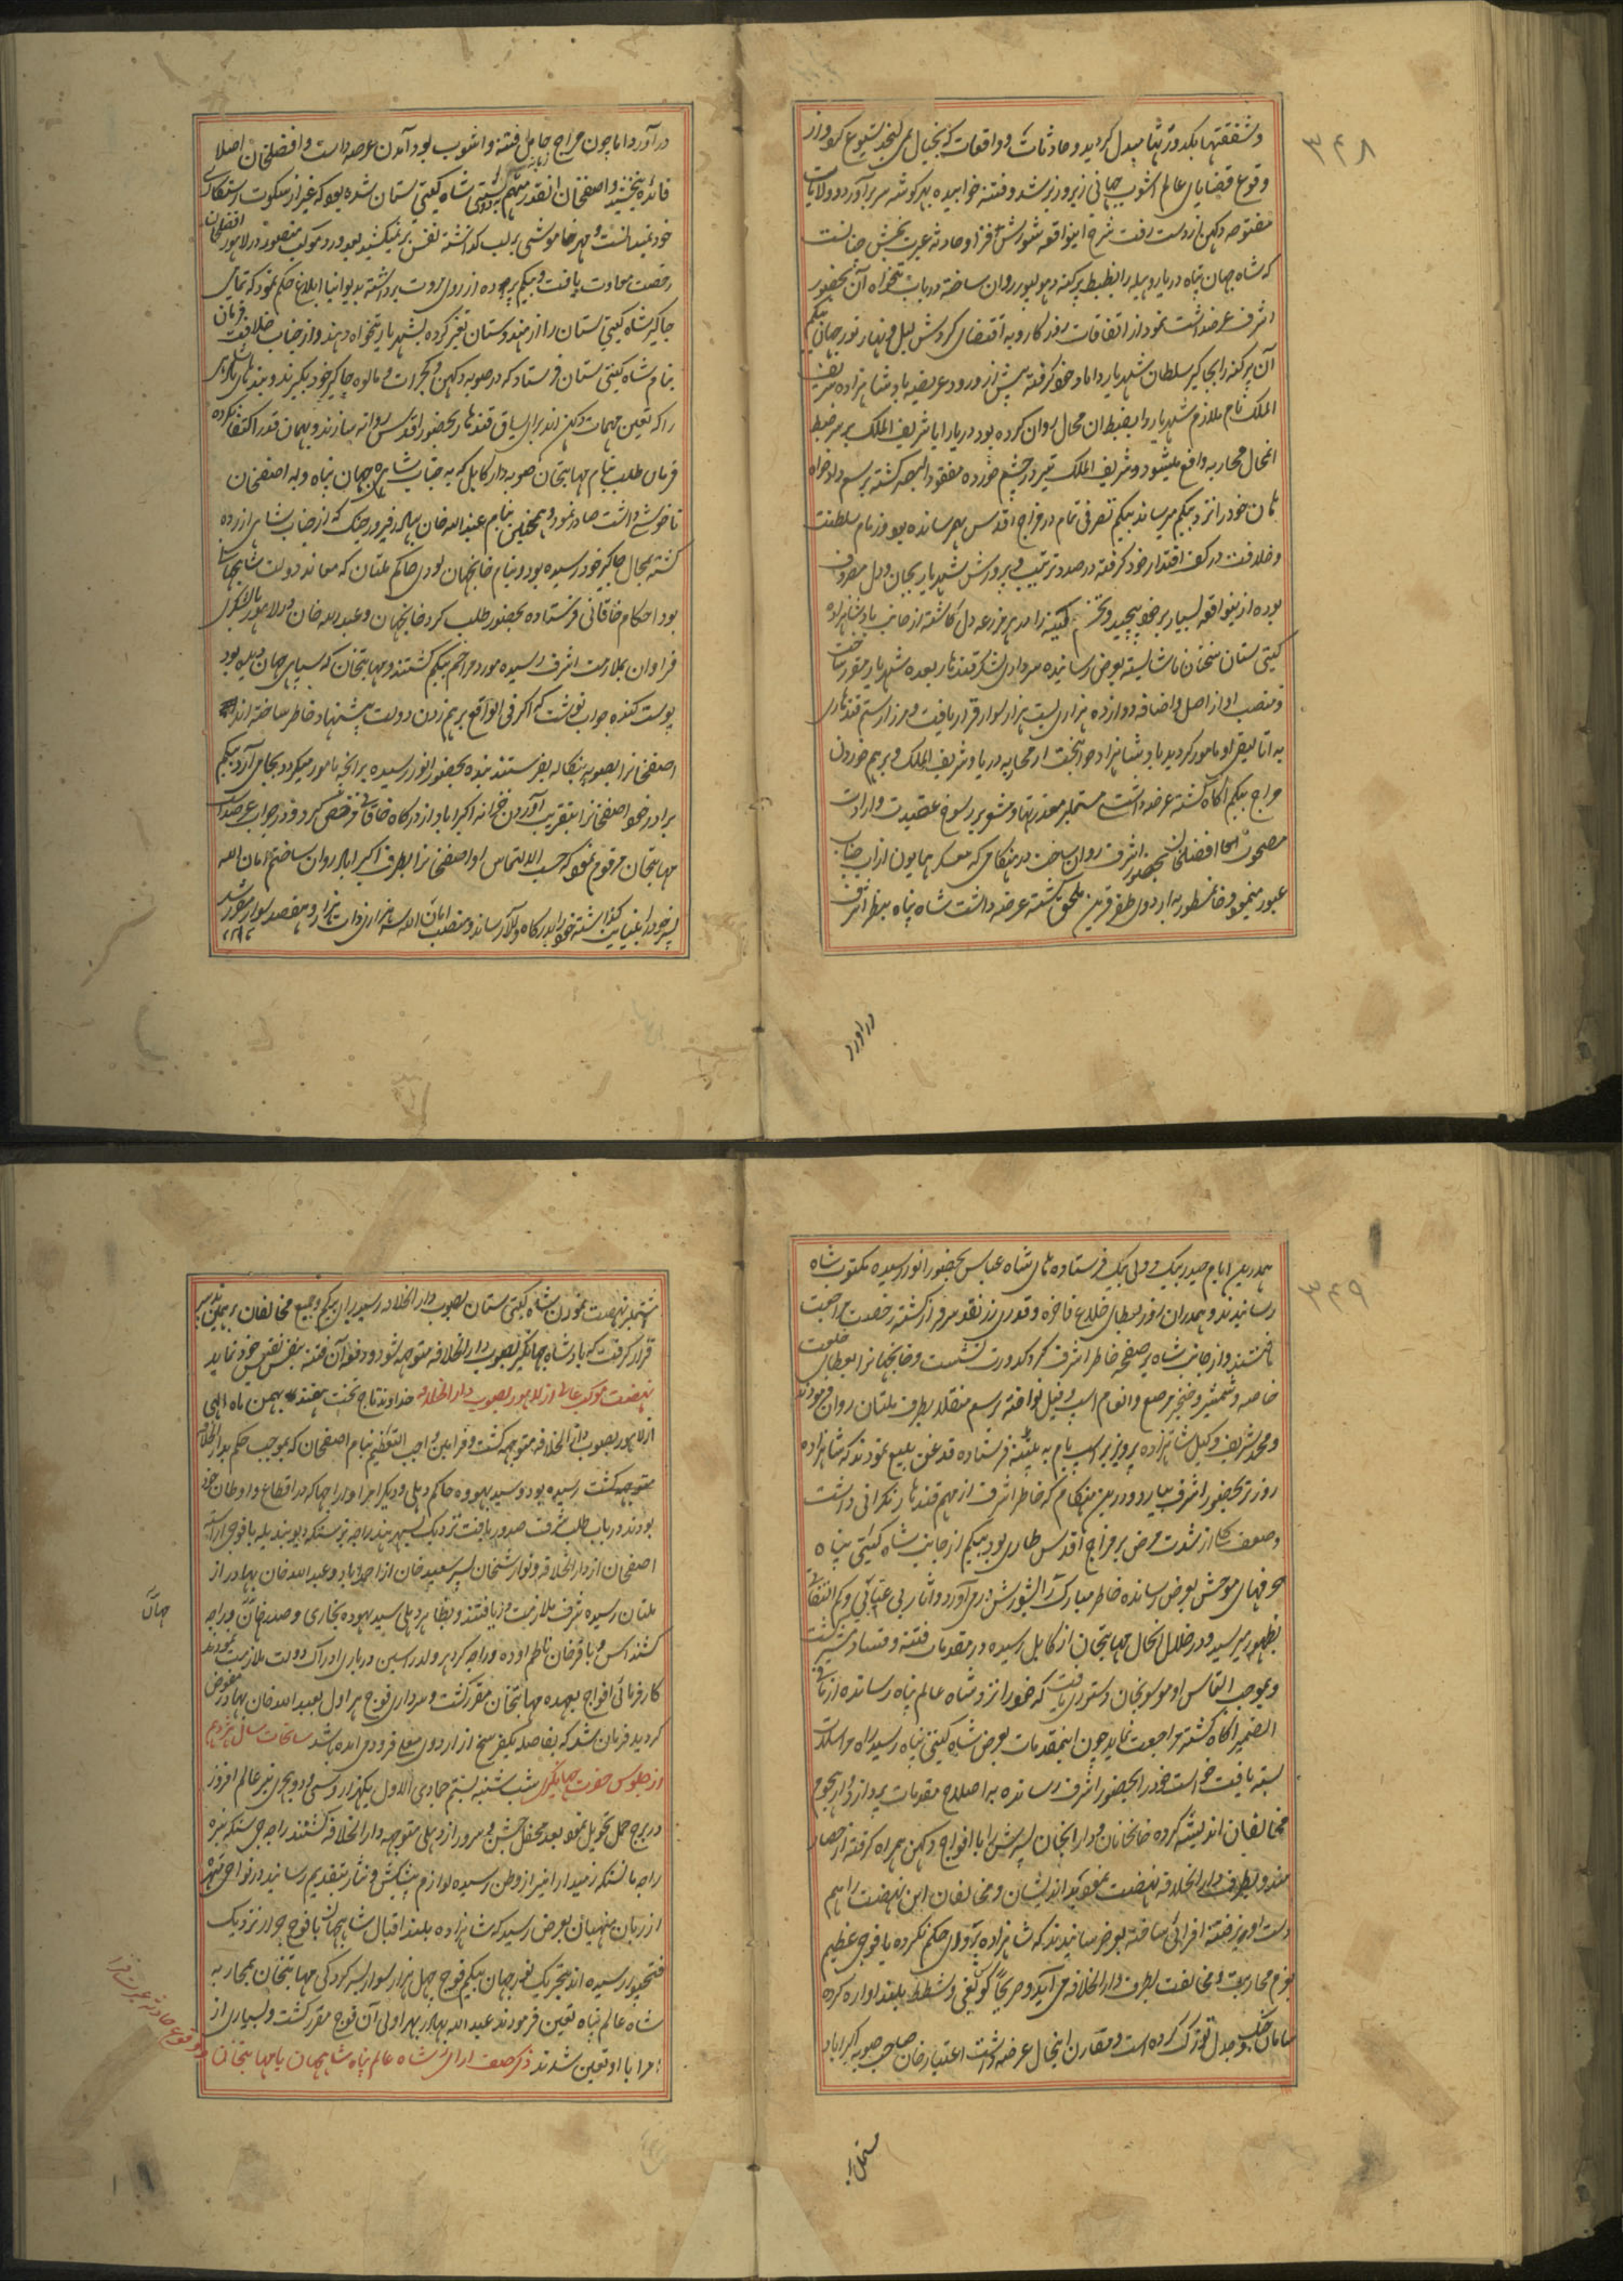 ۳۴۸
و شفقتها بکدورتها مبدل گردید و حادثات و واقعات که بخیال نمی گنجد بشیوع گرود از
وقوع قضایای عالم آشوب جهانی زیر و زبر شد و فتنه خوابیده بهر گوشه سر برآورد و ولایات
مفتوحه دکهن از دست رفت شرح اینواقعه شورش افزا و حادثه عبرت بخش چنانست
که شاه جهان پناه دریا روهیله را بضبط پرگنه دهولپور روان ساخته در باب تنخواه آن بحضور
اشرف عرضداشت نمود از اتفاقات روزگار و به اقتضای گردش لیل و نهار نور جهان بیگم
آن پرگنه را بجاگیر سلطان شهریار داماد خود گرفته پیش از ورود عریضه بادشاهزاده شریف
الملک نام ملازم شهریار را بضبط ان محال روان کرده بود دریا را با شریف الملک بر سر ضبط
انمحال محاربه واقع میشود و شریف الملک تیر در چشم خورده مفقود البصر گشته برسم دادخواه
ان خود را نزد بیگم میرساند بیگم تصرفی تمام در مزاج اقدس بهم رسانده بود و زمام سلطنت
و خلافت در کف اقتدار خود گرفته در صدد ترتیب و پرورش شهریار بجان و دل مصروف
بوده از ینواقعه بسیار بر خود پیچید و تخم کینه را در مزرعه دل کاشته از جانب بادشاهزاده
گیتی ستان سخنان ناشایسته بعرض رسانیده سرداری لشکر قندهار بعهده شهریار مقرر ساخت
و منصب او از اصل و اضافه دوازده هزاری بیست هزار سوار قرار یافت و میرزا رستم قندهاری
به اتالیقی او مامور گردید بادشاهزاده جوانبخت از محاربه دریا و شریف الملک و برهم خوردن
مزاج بیگم آگاه گشته عرضه داشت مشتمل بر معذرتها و مشعر بر رسوخ عقیدت و ارادت
مصحوب افضلخان بحضور اشرف روان ساخت در هنگامی که معسکر همایون از آب چناب
عبور مینمود خانمسطور به اردوی ظفر قرین ملحق گشته عرضه داشت شاه پناه بنظر اشرف
در اورد
در آورد اما چون مزاج حامل فتنه و اشوب بود آمدن عرضه داست و افضلخان اصلا
فائده نبخشید و اصفخان انقدر متهم بدوستی شاه گیتی ستان شده بود که غیر از سکوت رستگاری
خود نمیدانست و مهر خاموشی بر لب گذاشته نفس بر نمیکشید بعد ورود موکب منصور در لاهور افضلخان
رخصت معاودت یافت و بیگم پرده از روی مروت برداشته بدیوانیان ابلاغ حکم نمود که تمامی
جاگیر شاه گیتی ستان را از هندوستان تغیر کرده بشهریار تنخواه دهند و از جناب خلافت فرمان
بنام شاه گیتی ستان فرستاد که در صوبه دکهن و گجرات و مالوه جاگیر خود بگیرند و بندهای بادشاهی
را که تعین مهمات دکهن اند برای یساق قندهار بحضور اقدس روانه سازند و بهمان قدر اکتفا نکرده
فرمان طلب بنام مهابتخان که صوبه دار کابل که به جناب شاه جهان پناه و به اصفخان
ناخوشی داشت صادر نمود و همچنین بنام عبد الله خان بهادر فیروز جنگ که از جناب شاهی ازرده
گشته بمحال جاگیر خود رسیده بود و بنام خانجهان لودی حاکم ملتان که معاند دولت شاهجهانی
بود احکام خاقانی فرستاده بحضور طلب کرد خانجهان و عبد الله خان در لاهور با لشکری
فراوان بملازمت اشرف رسیده مورد مراحم بیگم گشتند و مهابتخان که سپاهی جهان دیده بود
پوست کنده جواب نوشت که اگر فی الواقع برهم زدن دولت پیشنهاد خاطر ساخته اند
اصفخانرا بصوبه بنگاله بفرستند بنده بحضور انور رسیده بر آنچه مامور میگردد بجا می آرد بیگم
برادر خود اصفخانرا بتقریب آوردن خزانه اکبراباد از درگاه خاقانی مرخص کرد و در جواب عرضداشت
مهابتخان مرقوم نمود که حسب الالتماس او اصفخانرا بطرف اکبراباد روان ساختم امان الله
پسر خود را بنیابت گذاشته خود را بدرگاه والا رساند و منصب امان الله سه هزاری ذات هزار و هفتصد سوار مقرر شد
۳۴۹
همدرین ایام حیدر بیگ و ولی بیگ فرستاده های شاه عباس بحضور انور رسیده مکتوب شاه
رسانیدند و همدران روز بعطای خلاع فاخره و قدری زر نقد سرفراز گشته رخصت مراجعت
یافتند و از جانب شاه بر صفحه خاطر اشرف گرد کدورت نشست و خانجهانرا بعطای خلعت
خاصه و شمشیر و خنجر مرصع و انعام اسپ و فیل نواخته برسم منقلا بطرف ملتان روان فرمودند
و محمد شریف وکیل شاهزاده پرویز بر اسپ یام به پتنه فرستاده قدغن بلیغ نمودند که شاهزاده
زود تر بحضور اشرف بیاید و درین هنگام که خاطر اشرف از مهم قندهار نگرانی داشت
وضعف کلی از شدت مرض بر مزاج اقدس طاری بود بیگم از جانب شاه گیتی پناه
حرفهای موحش بعرض رسانده خاطر مبارک را بشورش در می آورد و آثار بی عنایتی و کم التفاتی
بظهور میرسید و در خلال اینحال مهابتخان از کابل رسیده در مقدمات فتنه و فساد مشیر گشت
و بموجب التماس او موسویخان دستوری یافت که خود را نزد شاه عالم پناه رسانده از مافی
الضمیر آگاه گشته مراجعت نماید چون اینمقدمات بعرض شاه گیتی پناه رسید راه مراسلات
بسته یافت خواست خود را بحضور اشرف رسانده به اصلاح مقدمات پردازد و از هجوم
مخالفان اندیشه کرده خانخانان و داراب‌خان پسرش را با افواج دکهن همراه گرفته از حصار
مندو بطرف دار الخلافه نهضت نمود بد اندیشان و مخالفان این نهضت را هم
دست اویز فتنه افزائی ساخته بعرض رسانیدند که شاهزاده بر وی حکم نکرده با فوجی عظیم
بعزم محاربه و مخالفت بطرف دار الخلافه می آید و صریحا کوس بغی و شطط بلند اوازه کرده
سامان جنگ و جدل توزک کرده است و مقارن اینحال عرضه داشت اعتبار خان صاحب صوبه اکبراباد
مشتمل بر
مشتمل بر نهضت نمودن شاه گیتی ستان بصوب دار الخلافه رسید رای بیگم و جمیع مخالفان بر همین تدبیر
قرار گرفت که بادشاه جهانگیر بصوب دار الخلافه متوجه شود و دفع آن فتنه بنفس نفیس خود نماید
نهضت موکب عالی از لاهور بصوب دار الخلافه خداوند تاج تخت هفتدهم بهمن ماه الهی
از لاهور بصوب دار الخلافه متوجه گشت و فرامین واجب التعظیم بنام اصفخان که بموجب حکم بدار الخلافه
متوجه گشت رسیده بود و سید بهووه حاکم دهلی و دیگر امرا و راجها که در اقطاع و اوطان خود
بودند در باب طلب شرف صدور یافت نزدیک بسهرند راجه نرسنگدیو بندیله با فوجی اراسته
اصفخان از دار الخلافه و نوازشخان پسر سعید خان از احمداباد و عبد الله خان بهادر از
ملتان رسیده شرف ملازمت دریافتند و بظاهر دهلی سید بهوه بخاری و صدر خان و راجه
جهان
کشنداس و باقر خان ناظم اوده و راجه کردهر ولد رایسین درباری ادراک دولت ملازمت نمودند
کارفرمائی افواج بعهده مهابتخان مقرر گشت و سرداری فوج هراول بعبد الله خان بهادر مفوض
گردید فرمان شد که بفاصله یکفرسخ از اردوی معلی فرود می امده باشد سانحات سال هژدهم
از جلوس حضرت جهانگیری شب شنبه بیستم جمادی الاول یکهزار و سی و دو هجری نیر عالم افروز
در برج حمل تحویل نمود بعد محفل جشن و سرور از دهلی متوجه دار الخلافه گشتند راجه جی سنگه نبیره
راجه مانسنگه زمیندار انبیر از وطن رسیده لوازم پیشکش و نثار بتقدیم رسانید در نواحی متهره
از زبان منهیان بعرض رسید که شاهزاده بلند اقبال شاهجهان با فوج جرار نزدیک
فتحپور رسیده اند بتحریک نورجهان بیگم فوج چهل هزار سوار بسرکردگی مهابتخان بمحاربه
شاه عالم پناه تعین فرمودند عبد الله بهادر بهراولی آن فوج مقرر گشت و بسیاری از
امرا با او تعین شدند ذکر صف ارائی شاه عالم پناه شاهجهان با مهابتخان
و وقوع حادثه عبرت فزا